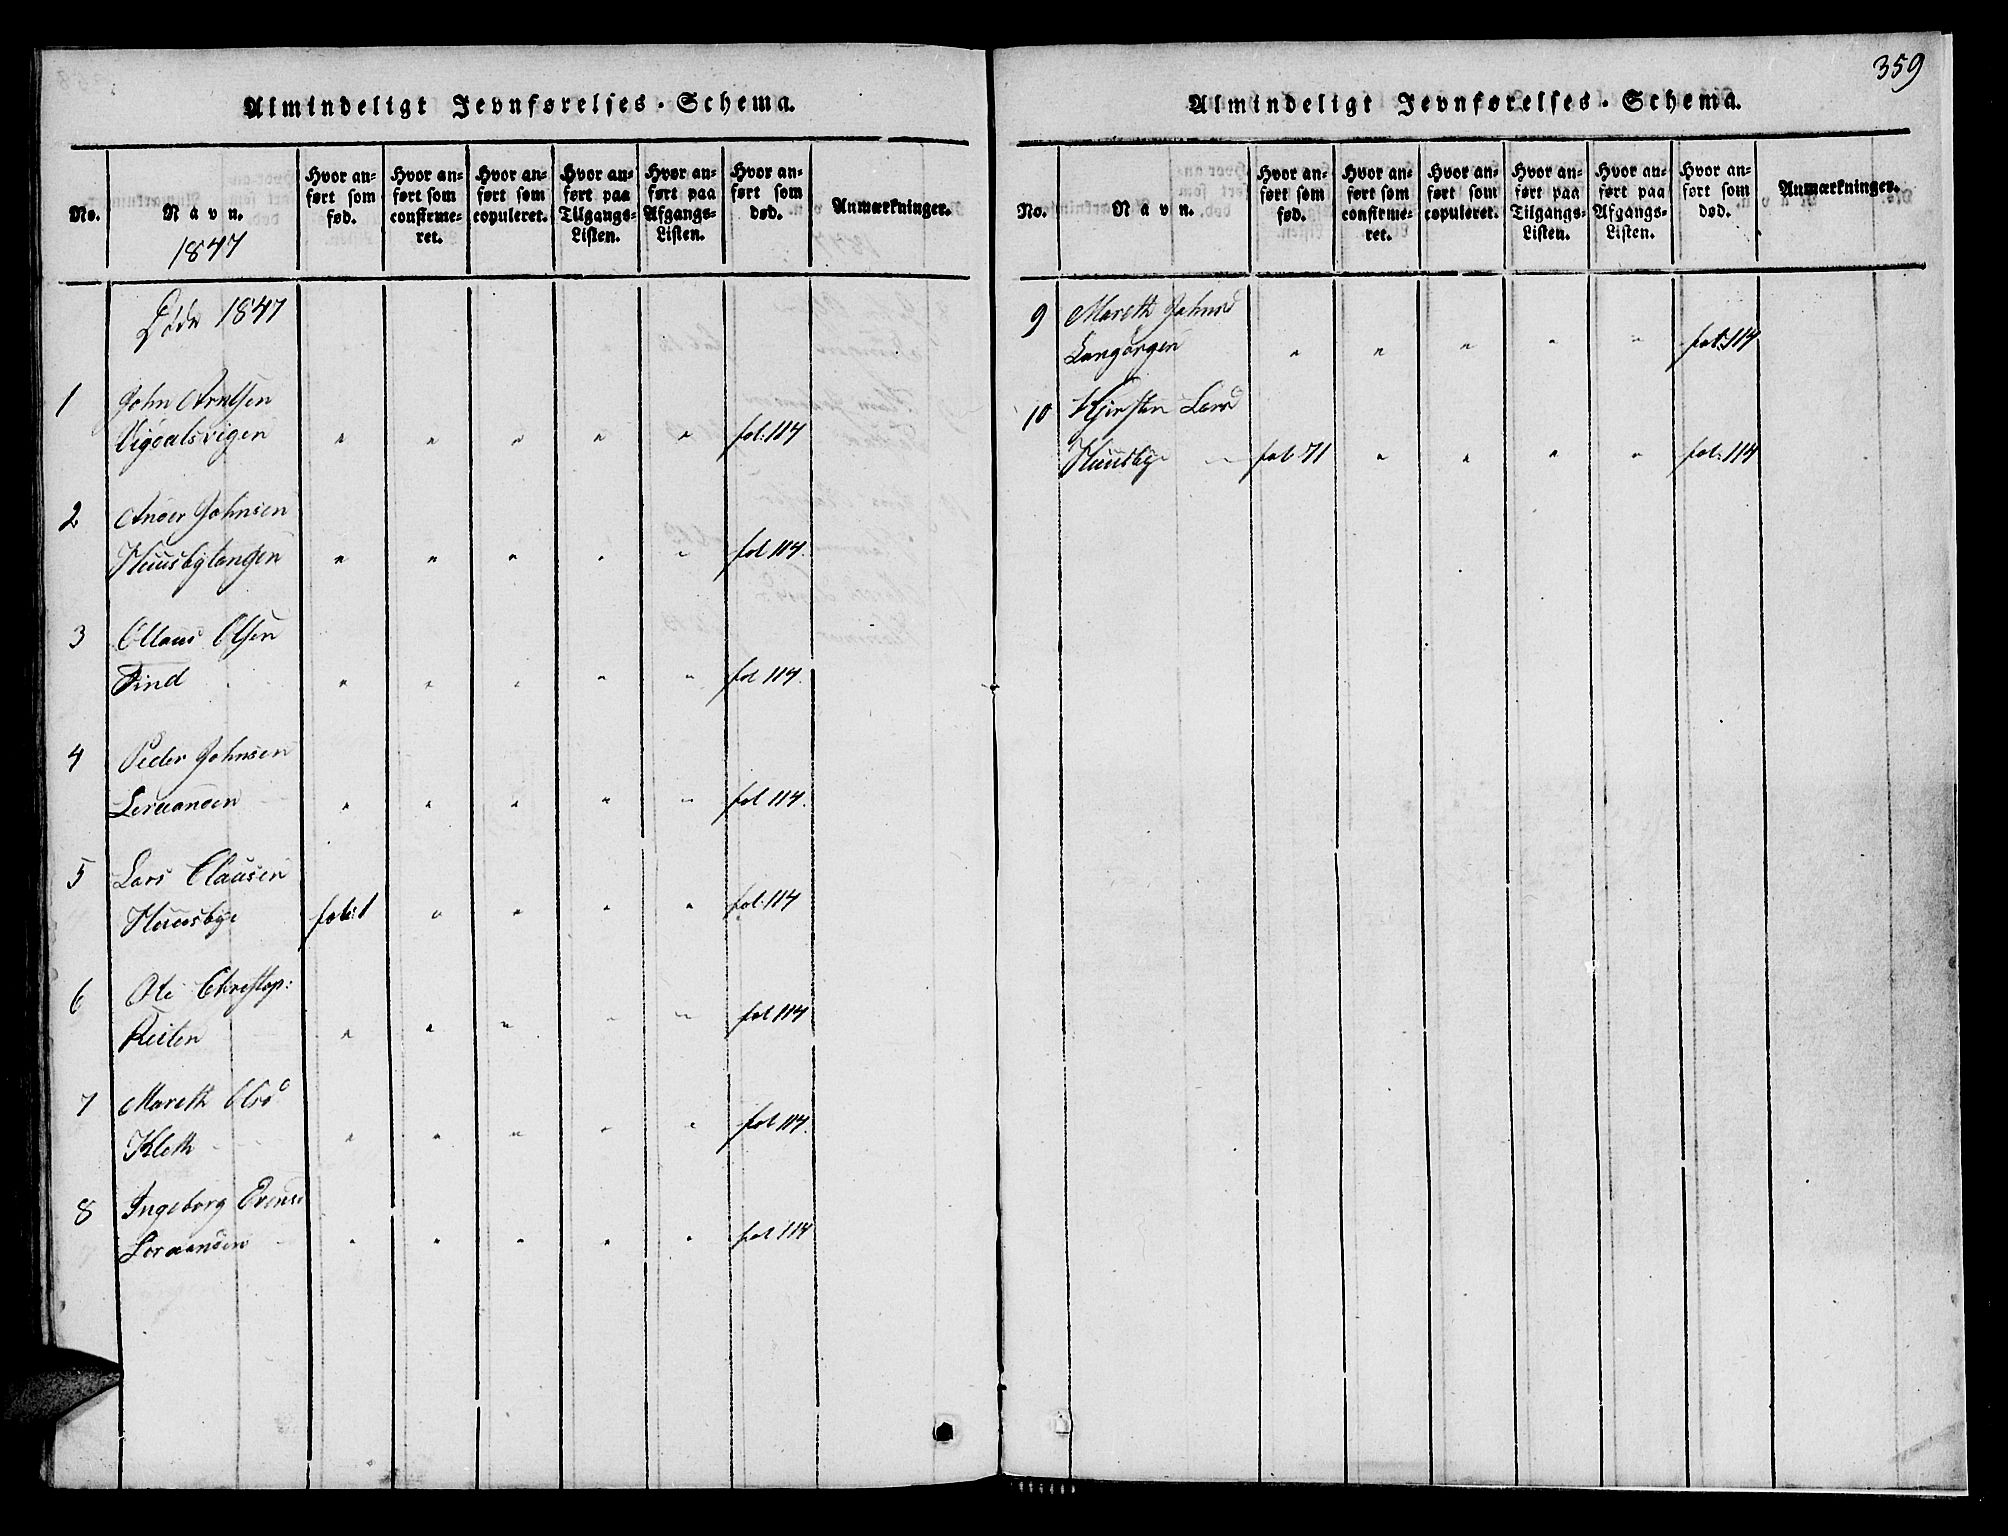 Almindeligt Jevnførelses-Schema.
No.
Navn.
1847
Hvor anført som fød.
Hvor anført som confirmeret.
Hvor anført som copuleret.
Hvor anført paa Tilgangs-Listen.
Hvor anført paa Afgangs-Listen.
Hvor anført som død.
Anmærkninger.
Døde 1847
1 John Arntsen
Vigdalsvigen " " " " " fol: 114
2 Ander Johnsen
Huusbytangen " " " " " fol 114.
3 Ollaus Olsen
Find " " " " " fol 114.
4 Peder Johnsen
Leraanden " " " " " fol 114.
5 Lars Clausen
Huusbye fol: 1 " " " " fol: 114
6 Ole Christop:
Reiten " " " " " fol 114
7 Mareth Olsd
Kleth " " " " " fol 114.
8 Ingeborg Evensd
Leraanden " " " " " fol 114
359
Almindeligt Jevnførelses-Schema.
No.
Navn.
Hvor anført som fød.
Hvor anført som confirmeret.
Hvor anført som copuleret.
Hvor anført paa Tilgangs-Listen.
Hvor anført paa Afgangs-Listen.
Hvor anført som død.
Anmærkninger.
9 Mareth Johnsd
Langørgen " " " " " fol: 114
10 Kjersten Larsd
Huusbye fol 71 " " " " fol: 114